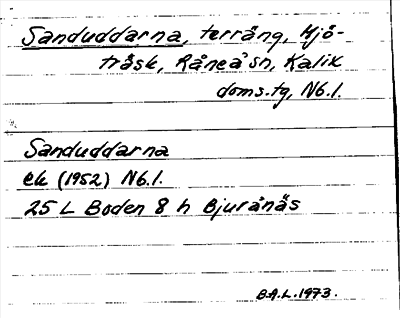 Sanduddarna, terräng, Mjö-
träsk, Råneå sn, Kalix
doms.tg, Nb.l.
Sanduddarna
ek (1952) Nb.l.
25 L Boden 8 h Bjuränäs
B.A.L. 1973.